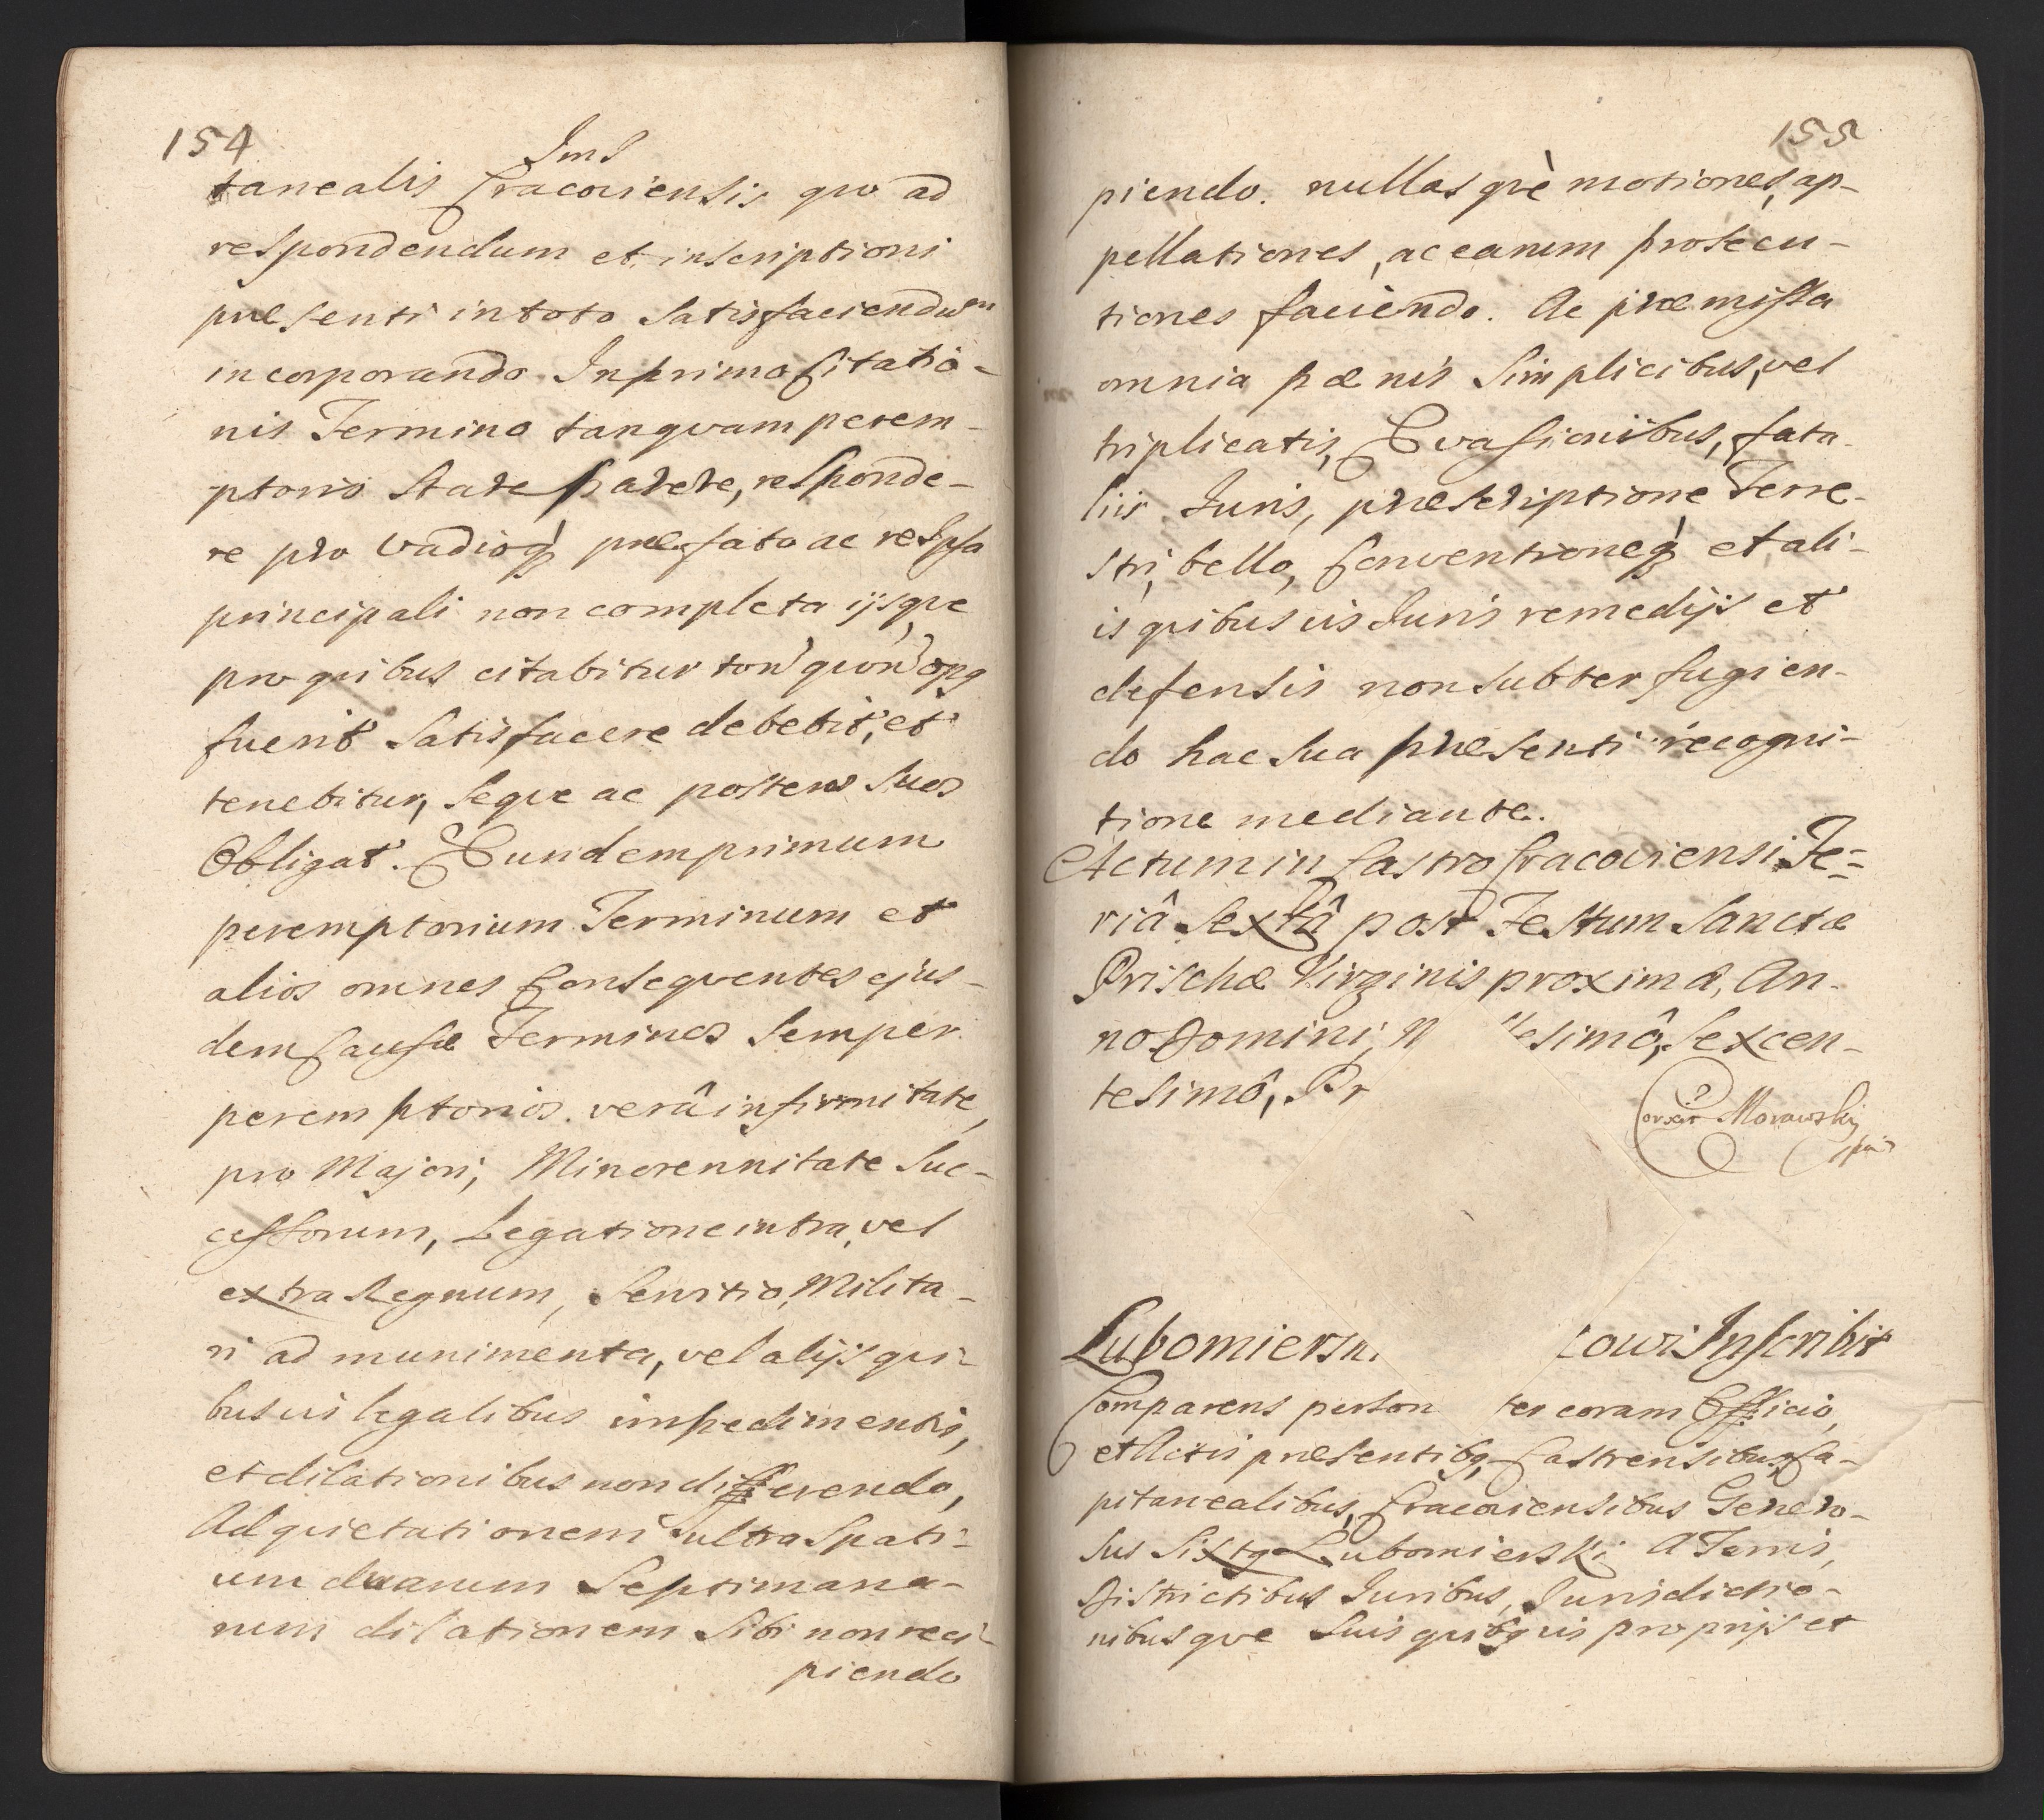 154
tanealis Cracoviensis quo ad
respondendum et inscriptioni
præsenti in toto satisfaciendum
incorporando. In primo Citatio-
nis Termino tanquam perem-
ptorio stare parere, responde-
re pro vadioq præfato ac re ipsa
principali non completa ijsque
pro quibus citabitur
fuerit satisfacere debebit, et
tenebitur, seque ac posteros suos
Obligat. Eundem primum
peremptorium Terminum et
alios omnes Consequentes ejus-
dem Causæ Terminos semper
peremptorios. verâ infirmitate,
pro Majori, Minorennitate suc-
cessorum, Legatione intra, vel
extra Regnum, Servitio, Milita-
ri ad munimenta, vel alijs qui-
busvis legalibus impedimentis,
et dilationibus non differendo,
Ad quietationem ultra spati-
um duarum Septimana-
rum dilationem sibi non reci-
piendo
155
piendo. nullasquè motiones, ap-
pellationes, ac earum prosecu-
tiones faciendo. Ac præmissa
omnia pænis Simplicibus, vel
triplicatis, Evasionibus, fata-
liis Juris, præscriptione Terre-
stri, bello, Conventioneq et ali-
is quibusvis Juris remedijs et
defensis non subterfugien-
do hac sua præsenti recogni-
tione mediante.
Actum in Castro Cracoviensi Fe-
riâ Sextâ post Festum Sanctæ
Prischæ Virginis proximâ, An-
no Domini, M esimô, Sexcen-
tesimô, Pr
Correxit Morawski
Lubomiersk cowi Inscribit
Comparens person ter coram Officio,
et Actis præsentibq Castrensibus, Ca-
pitanealibus, Cracoviensibus Genero-
sus Sixtq Lubomierski A Terris,
Districtibus Juribus, Jurisdictio-
nibusque suis quibqvis proprijs et